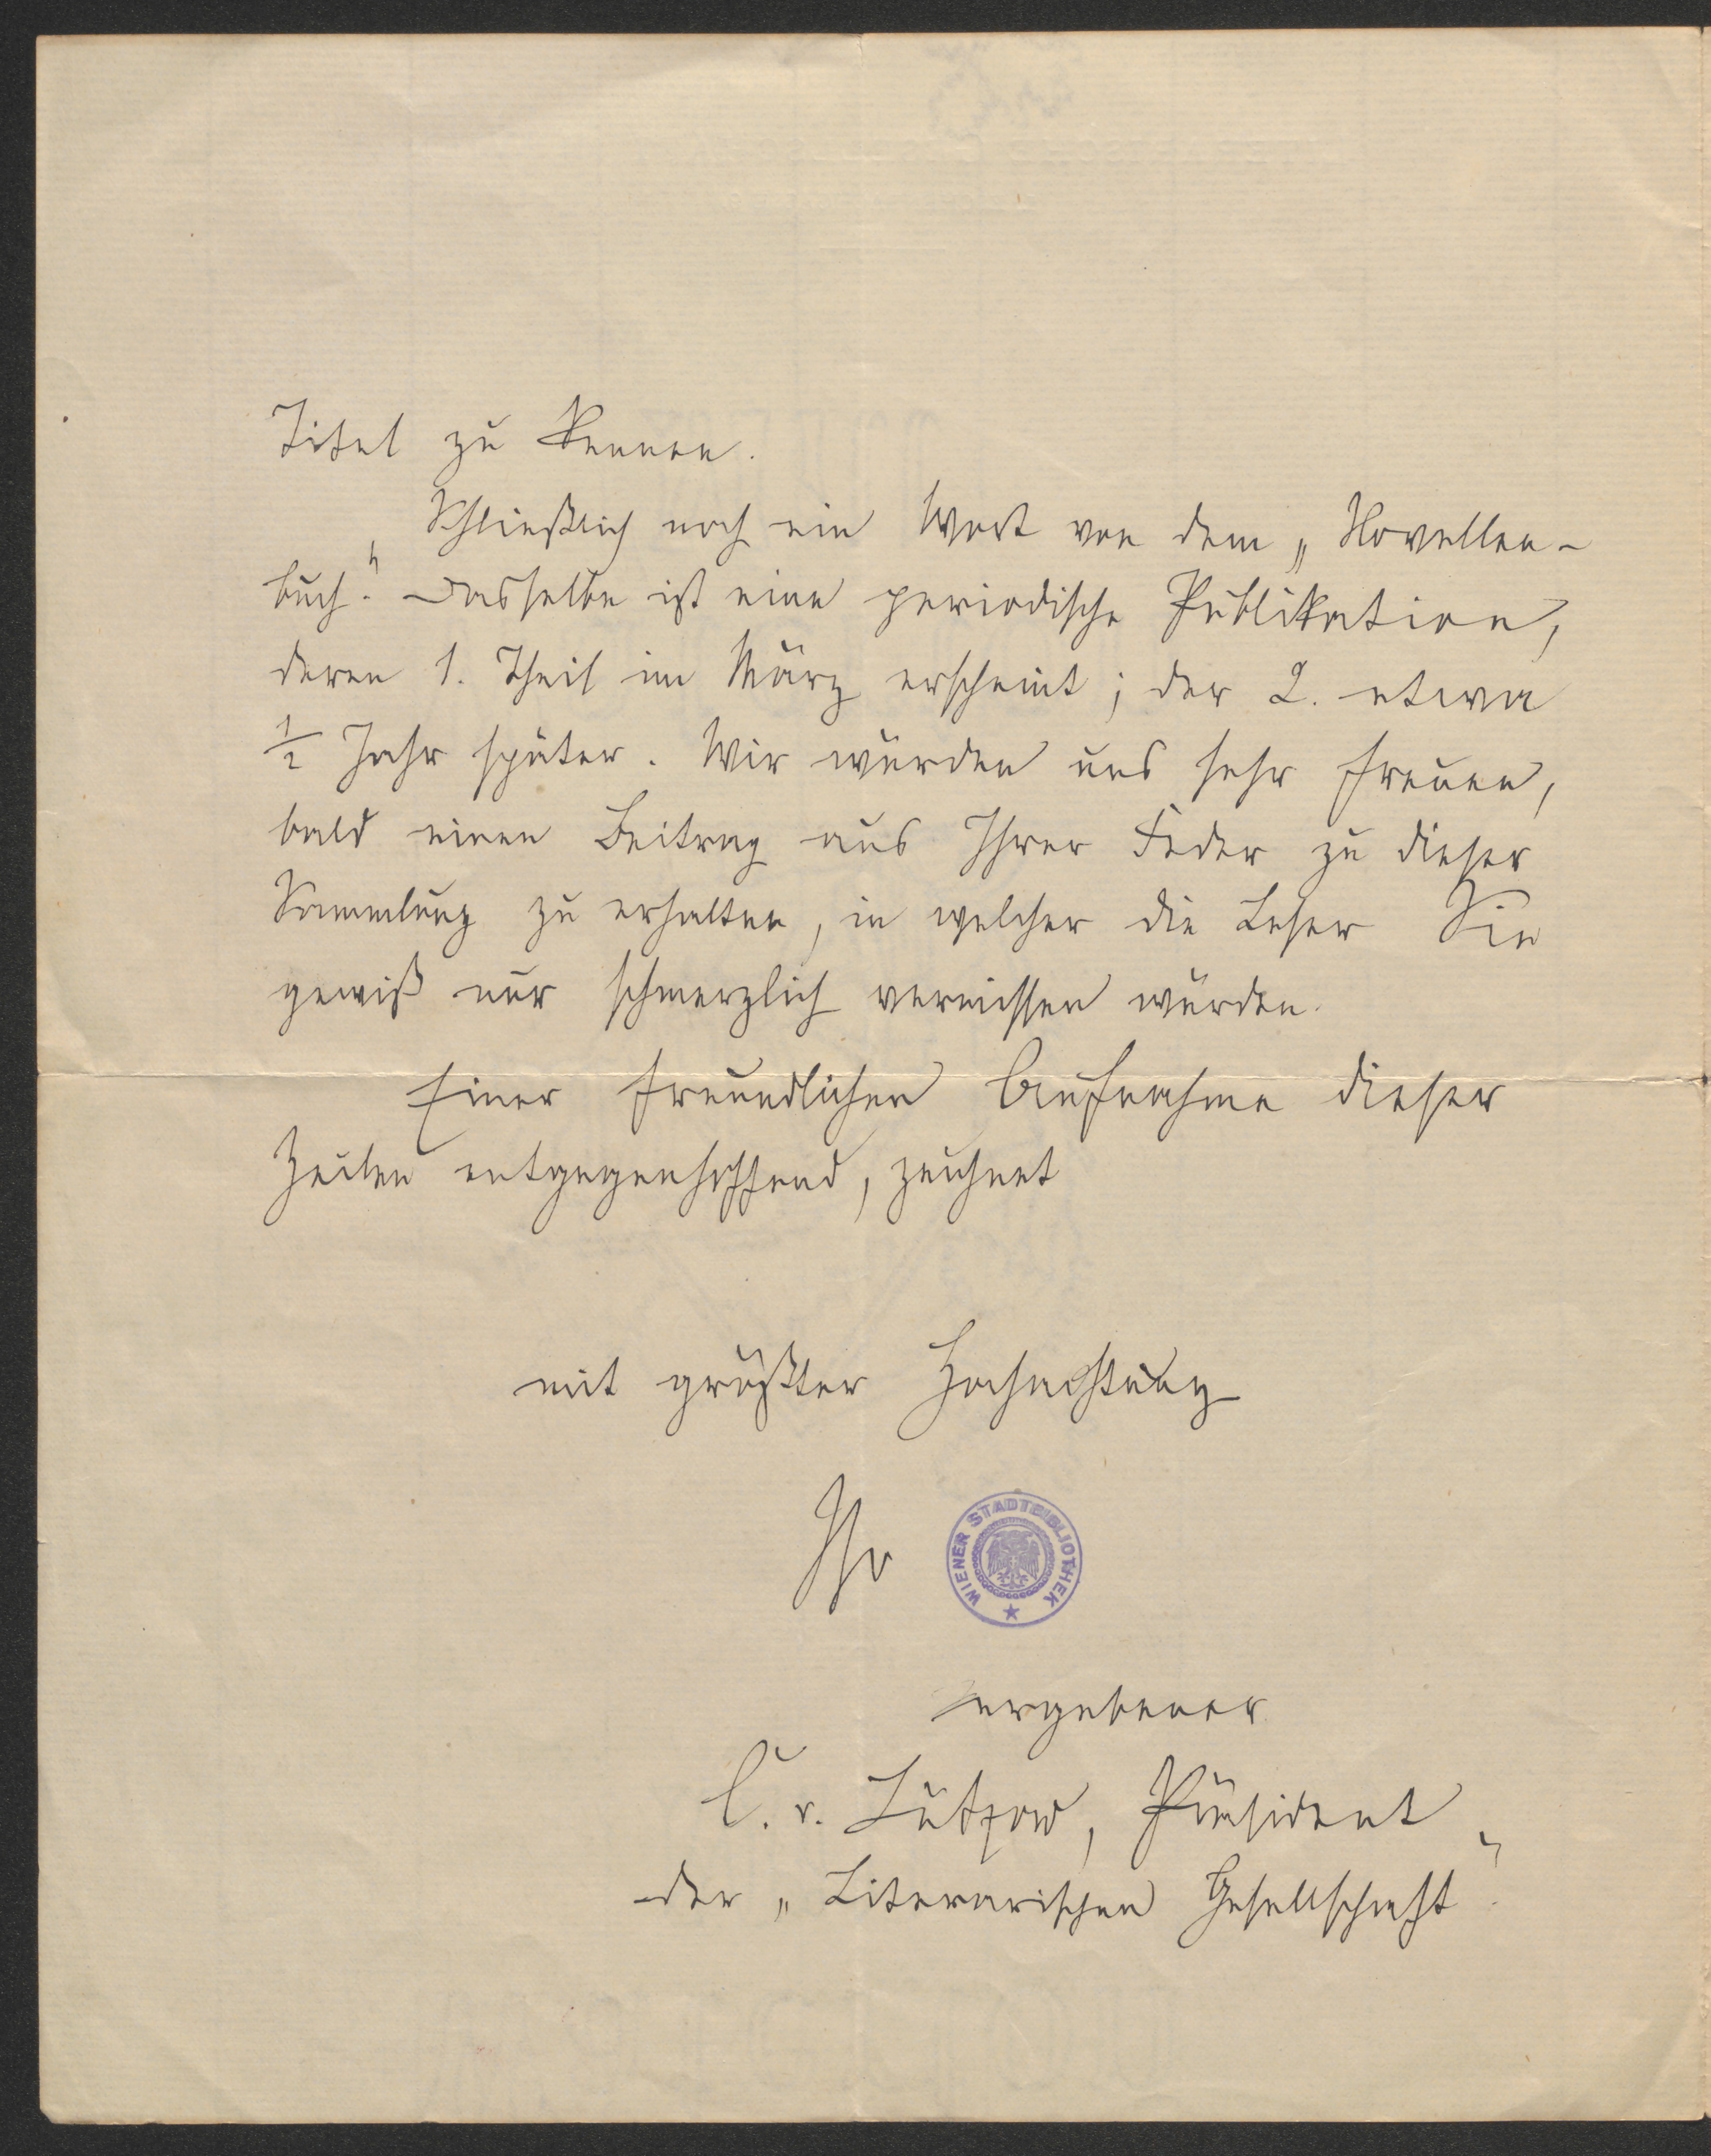 Titel zu kennen.
Schließlich noch ein Wort von dem „Novellen-
buch". Dasselbe ist eine periodische Publikation,
deren 1. Theil im März erscheint; der 2. etwa
1/2 Jahr später. Wir würden uns sehr freuen,
bald einen Beitrag aus Ihrer Feder zu dieser
Sammlung zu erhalten, in welcher die Leser Sie
gewiß nur schmerzlich vermissen würden.
Einer freundlichen Aufnahme dieser
Zeilen entgegenhoffend, zeichnet
mit größter Hochachtung
Ihr
WIENER STADTBIBLIOTHEK
ergebener
C. v. Lützow, Präsident
der „Literarischen Gesellschaft".